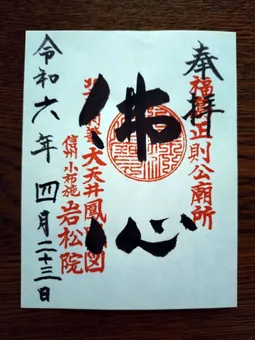 奉拝
福島正則公廟所
佛心
大天井鳳凰図
信州小布施
岩松院
令和六年 四月二十三日